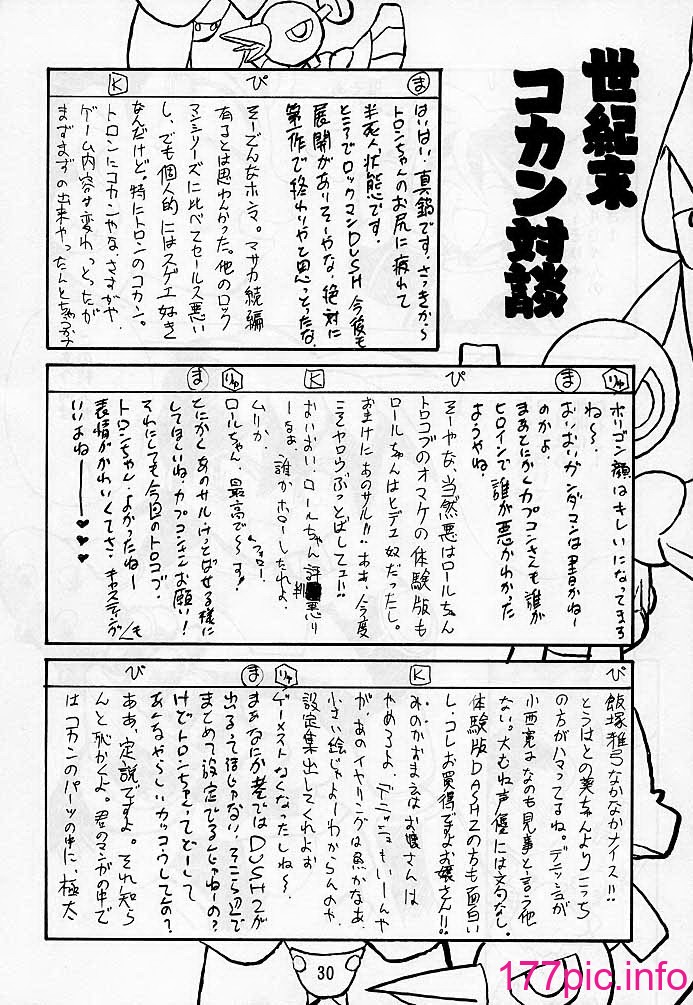 世紀末
コカン対談
ま
ぴ
K
はいはい!真鍋です。さっきから
トロンちゃんのお尻に疲れて
半死人状態です。
ところでロックマンDUSH今後も
展開がありそーやな、絶対に
第一作で終わりやと思っとったな。
そーどんなホンマ。マサカ続編
有るとは思わんかった。他のロック
マンシリーズに比べてセールス悪い
し、でも個人的にはスゲエ好き
なんだけど。特にトロンのコカン。
トロンにコカンやな、さすがや、
ゲーム内容は変わっとったが
まずまずの出来やったんとちゃうか?
りゅ
ま
ぴ
K
りゅ
ま
ポリゴン顔はキレいになってます
ね〜。
おいおいガンダマンは里音かねー
のかよ。
まあとにかくカプコンさんも誰が
ヒロインで誰が悪かわかった
ようやね。
そーやな、当然悪はロールちゃん
トロコブのオマケの体験版も
ロールちゃんはヒデエ奴だったし。
おまけにあのサル!!おお、今度
こそヤロウぶっとばしてェ!!
おいおい、ロールちゃん評判悪り
ーなぁ、誰かホローしたれよ。
ムリか。
ロールちゃん、最高で〜す!
フォロー
とにかくあのサルけっとばせる様に
してほしいね、カプコンさんお願い!
それにしても今回のトロコブ
トロンちゃん、よかったねー
表情がかわいくてさ、キャスティングも
いいよねー♥♥♥
ぴ
K
りゅ
ま
ぴ
飯塚雅弓なかなかナイス!!
とうはとの美ちゃんよりこっち
の方がハマってるね。デニッシュが
小西寛はなのも見事と言う他
ない。大むね声優には文句なし。
体験版DASH2の方も面白い
し、コレお買得ですよお嬢さん!!
みのかおまえはお嬢さんは
やめろよ、デニッシュもいーんや
が、あのイヤリングは魚かなあ、
小さい絵じゃよーわからんのや、
設定集出してくれよお
ゲーメストなくなったしね〜。
まあなにか巷ではDUSH2が
出るって話じゃない、そこら辺で
まとめて設定でるんじゃねーの?
けどトロンちゃんってどーして
あんなやらしいカッコうしてんの?
ああ、定説ですよ。それ知ら
んと恥かくよ。君のマンガの中で
はコカンのパーツの中に、極太
30
177pic.info